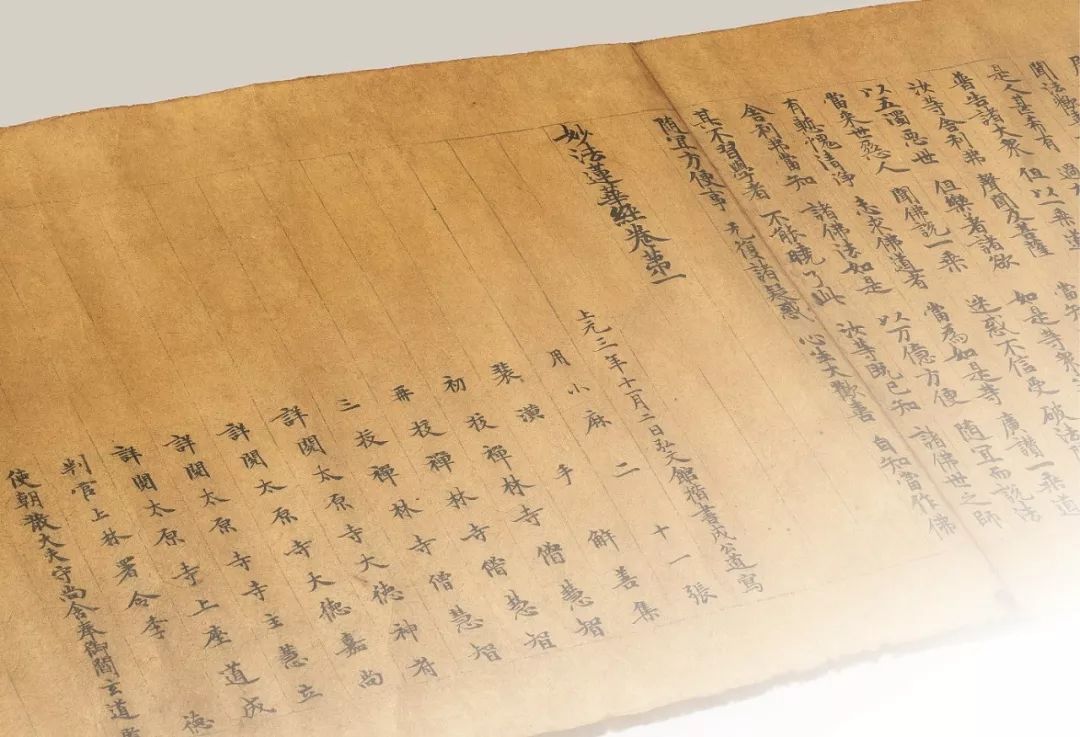 聞法歡
是人甚希有 過
普告諸大衆 但以一乘道
汝等舍利弗 聲聞及菩薩 當知
以五濁惡世 但樂著諸欲 如是等衆
當來世惡人 聞佛說一乘 迷惑不信受 破法
有慙愧清淨 志求佛道者 當為如是等 廣讚一乘道
舍利弗當知 諸佛法如是 以万億方便 隨宜而說法
其不習學者 不能曉了此 汝等既已知 諸佛世之師
隨宜方便事 无復諸疑惑 心生大歡喜 自知當作佛
妙法蓮華經卷第一
上元三年十一月二日弘文館楷書成公道寫
用小麻二十一張
裝潢手解善集
初挍禪林寺僧慧智
再挍禪林寺僧慧智
三挍禪林寺僧慧智
詳閱太原寺大德神苻
詳閱太原寺大德嘉尚
詳閱太原寺寺主慧立
詳閱太原寺上座道成
判官上林署令李德
使朝散大夫守尚舍奉御閻玄道